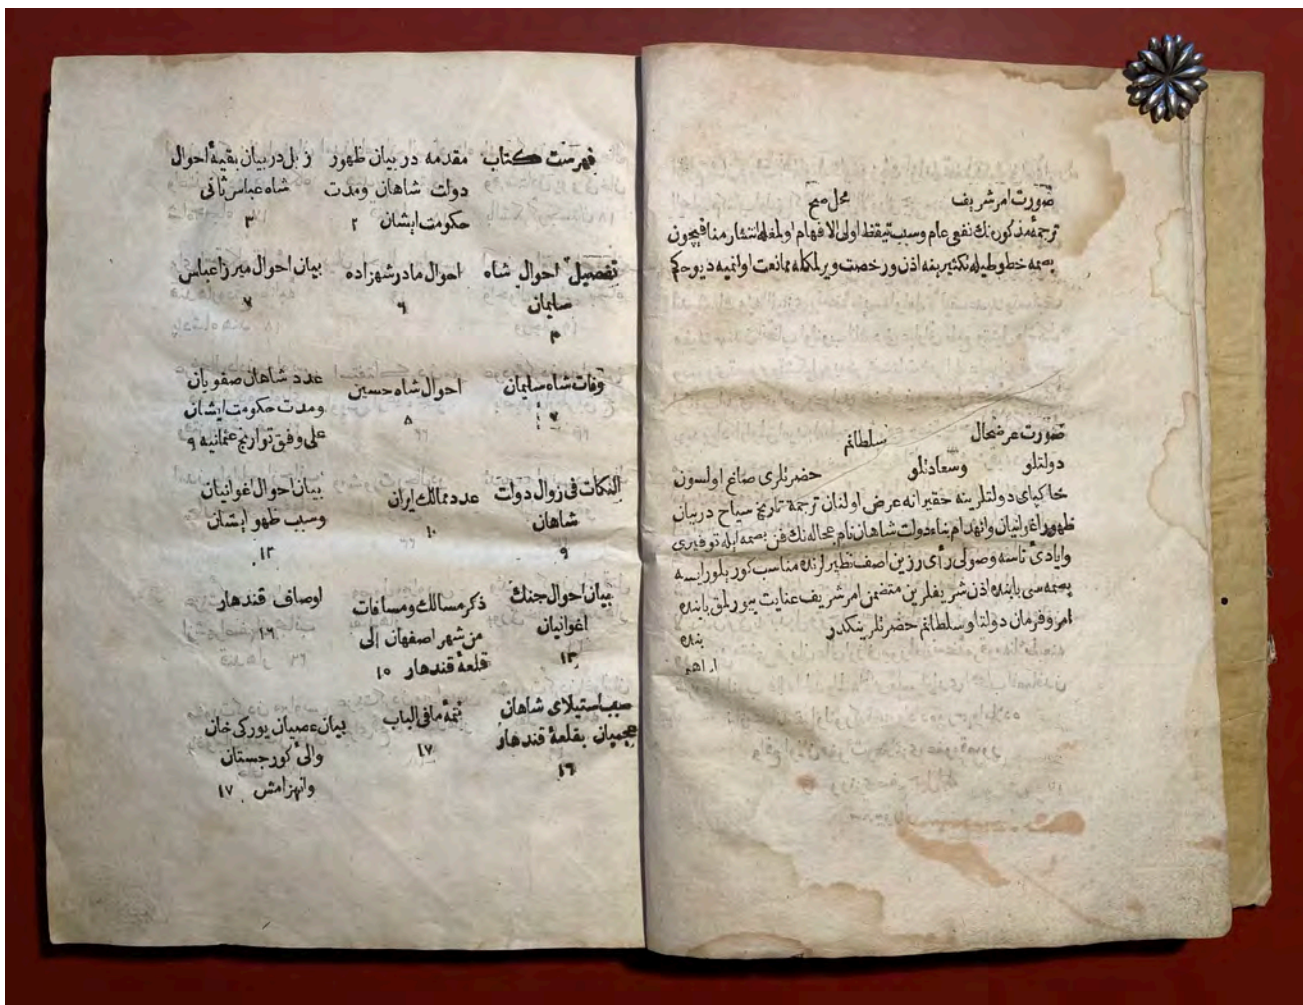 صورت امر شریف محل صح
ترجمهٔ مذکوره نك نفعی عام وسبب تیقظ اولی الافهام اولمغله انتشار منافعیچون
بصمه خطوطیله تکثیرینه اذن ورخصت ویرلمکله ممانعت اولنمیه دیو حکم
صورت عرضحال سلطانم
دولتلو وسعادتلو حضرتلری صاغ اولسون
خاکپای دولتلرینه حقیرانه عرض اولنان ترجمهٔ تاریخ سیاح دربیان
ظهور اغوانیان وانهدام بناء دولت شاهان نام عجاله نك فن بصمه ایله توفیری
وایادئ ناسه وصولی رأی رزین اصف نظیرلرنده مناسب کوریلورایسه
بصمه سی بابنده اذن شریفلرین متضمن امر شریف عنایت بیورلمق بابنده
امر وفرمان دولتلو سلطانم حضرتلرینکدر
بنده
ابراهیم
فهرست کتاب
مقدمه در بیان ظهور
دولت شاهان ومدت
حکومت ایشان ٢
زیل دربیان بقیهٔ احوال
شاه عباس ثانی
٣
تفصیل احوال شاه
سلیمان
٣
احوال مادر شهزاده
٦
بیان احوال میرزا عباس
٧
وفات شاه سلیمان
٧
احوال شاه حسین
٨
عدد شاهان صفویان
ومدت حکومت ایشان
علی وفق تواریخ عثمانیه ٩
النکات فی زوال دولت
شاهان
٩
عدد ممالك ایران
١٠
بیان احوال اغوانیان
وسبب ظهو ایشان
١٢
بیان احوال جنك
اغوانیان
١٣
ذکر مسالك ومسافات
من شهر اصفهان الی
قلعهٔ قندهار ١٥
اوصاف قندهار
١٦
سبب استیلای شاهان
عجمیان بقلعهٔ قندهار
١٦
تتمهٔ مافی الباب
١٧
بیان عصیان یورکی خان
والئ کورجستان
وانهزامش ١٧